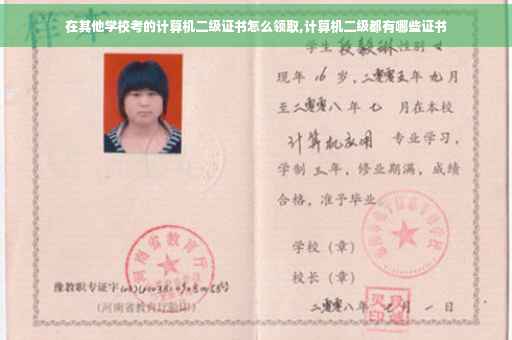 在其他学校考的计算机二级证书怎么领取,计算机二级都有哪些证书
样本
学生段毅琳性别女
现年16岁,二零零五年九月
至二零零八年七月在本校
计算机应用 专业学习,
学制三年,修业期满,成绩
合格,准予毕业
学校(章)
校长(章)
二零零八年七月一日
河南省教育厅
豫教职专证字
(河南省教育厅验印)